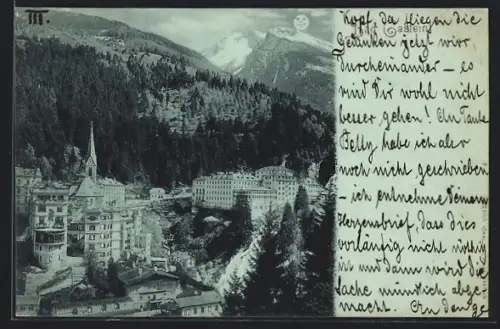 III.
Bad Gastein
Kopf, da fliegen die
Gedanken jetzt wirr
durcheinander – es
wird Dir wohl nicht
besser gehen! An Tante
Betty habe ich aber
noch nicht geschrieben
– ich entnehme Deinem
Herzensbrief, dass dies
vorläufig nicht nöthig
ist und dann wird die
Sache mündlich abge-
macht. An den